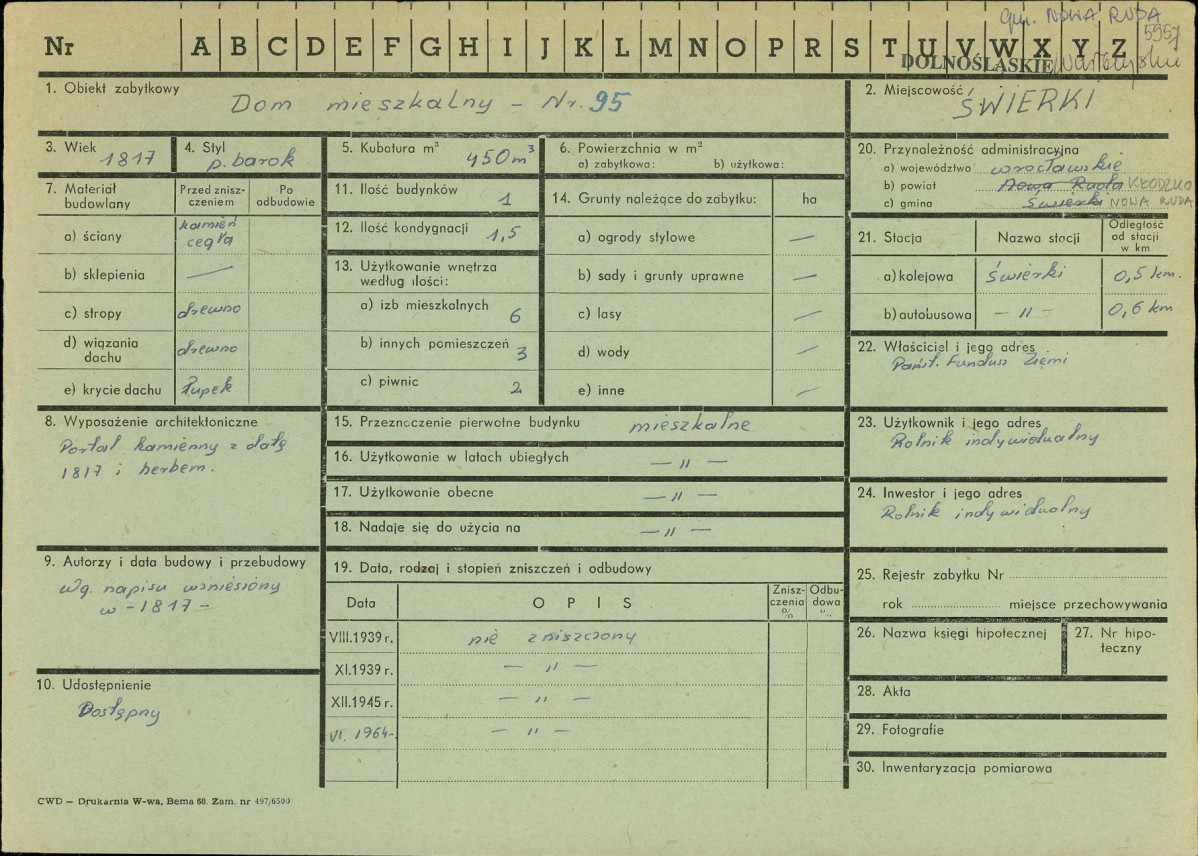 gm. NOWA RUDA
5957
Nr A B C D E F G H I J K L M N O P R S T U V W X Y Z
DOLNOŚLĄSKIE
1. Obiekt zabytkowy
Dom mieszkalny – Nr. 95
2. Miejscowość
ŚWIERKI
3. Wiek
1817
4. Styl
p. barok
5. Kubatura m³
450 m³
6. Powierzchnia w m²
a) zabytkowa: b) użytkowa:
7. Materiał budowlany
Przed zniszczeniem
Po odbudowie
a) ściany kamień cegła
b) sklepienia —
c) stropy drewno
d) wiązania dachu drewno
e) krycie dachu Łupek
8. Wyposażenie architektoniczne
Portal kamienny z datą
1817 i herbem.
9. Autorzy i data budowy i przebudowy
Wg. napisu wzniesiony
w – 1817 –
10. Udostępnienie
Dostępny
11. Ilość budynków
1
12. Ilość kondygnacji
1,5
13. Użytkowanie wnętrza
według ilości:
a) izb mieszkalnych 6
b) innych pomieszczeń 3
c) piwnic 2
14. Grunty należące do zabytku: ha
a) ogrody stylowe —
b) sady i grunty uprawne —
c) lasy —
d) wody —
e) inne —
15. Przeznaczenie pierwotne budynku mieszkalne
16. Użytkowanie w latach ubiegłych — " —
17. Użytkowanie obecne — " —
18. Nadaje się do użycia na — " —
19. Data, rodzaj i stopień zniszczeń i odbudowy
Data OPIS Zniszczenia % Odbudowa %
VIII.1939 r. nie zniszczony
XI.1939 r. — " —
XII.1945 r. — " —
VI. 1964 r. — " —
20. Przynależność administracyjna
a) województwo wrocławskie
b) powiat Nowa Ruda KŁODZKO
c) gmina Świerki NOWA RUDA
21. Stacja Nazwa stacji Odległość od stacji w km
a) kolejowa Świerki 0,5 km.
b) autobusowa — " — 0,6 km
22. Właściciel i jego adres
Państ. Fundusz Ziemi
23. Użytkownik i jego adres
Rolnik indywidualny
24. Inwestor i jego adres
Rolnik indywidualny
25. Rejestr zabytku Nr
rok miejsce przechowywania
26. Nazwa księgi hipotecznej
27. Nr hipoteczny
28. Akta
29. Fotografie
30. Inwentaryzacja pomiarowa
CWD — Drukarnia W-wa, Bema 60. Zam. nr 497/6500